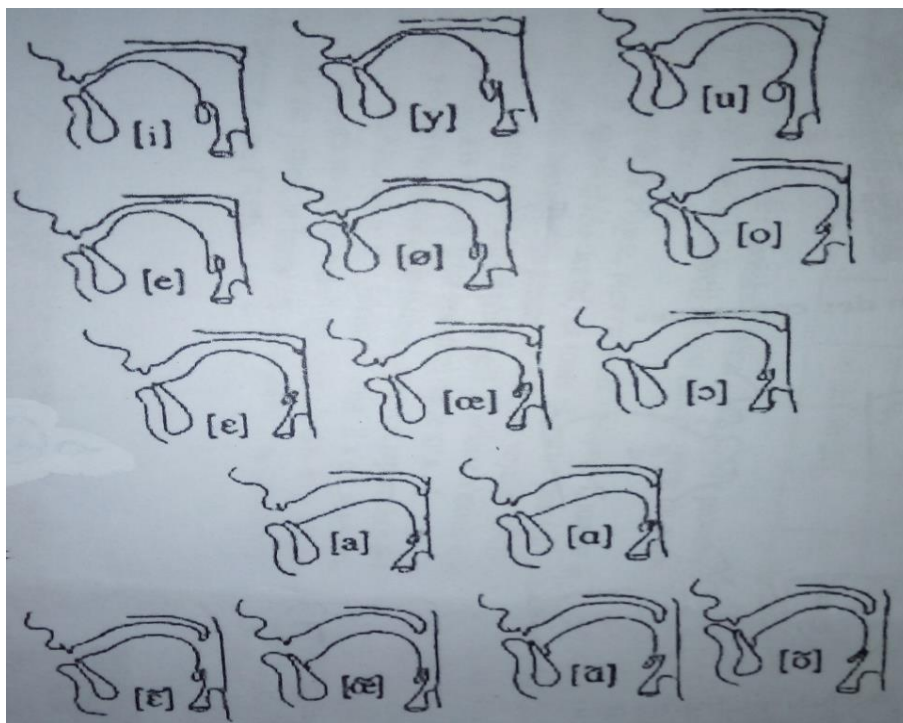 [i] [y] [u]
[e] [ø] [o]
[ɛ] [œ] [ɔ]
[a] [ɑ]
[ɛ̃] [œ̃] [ɑ̃] [ɔ̃]